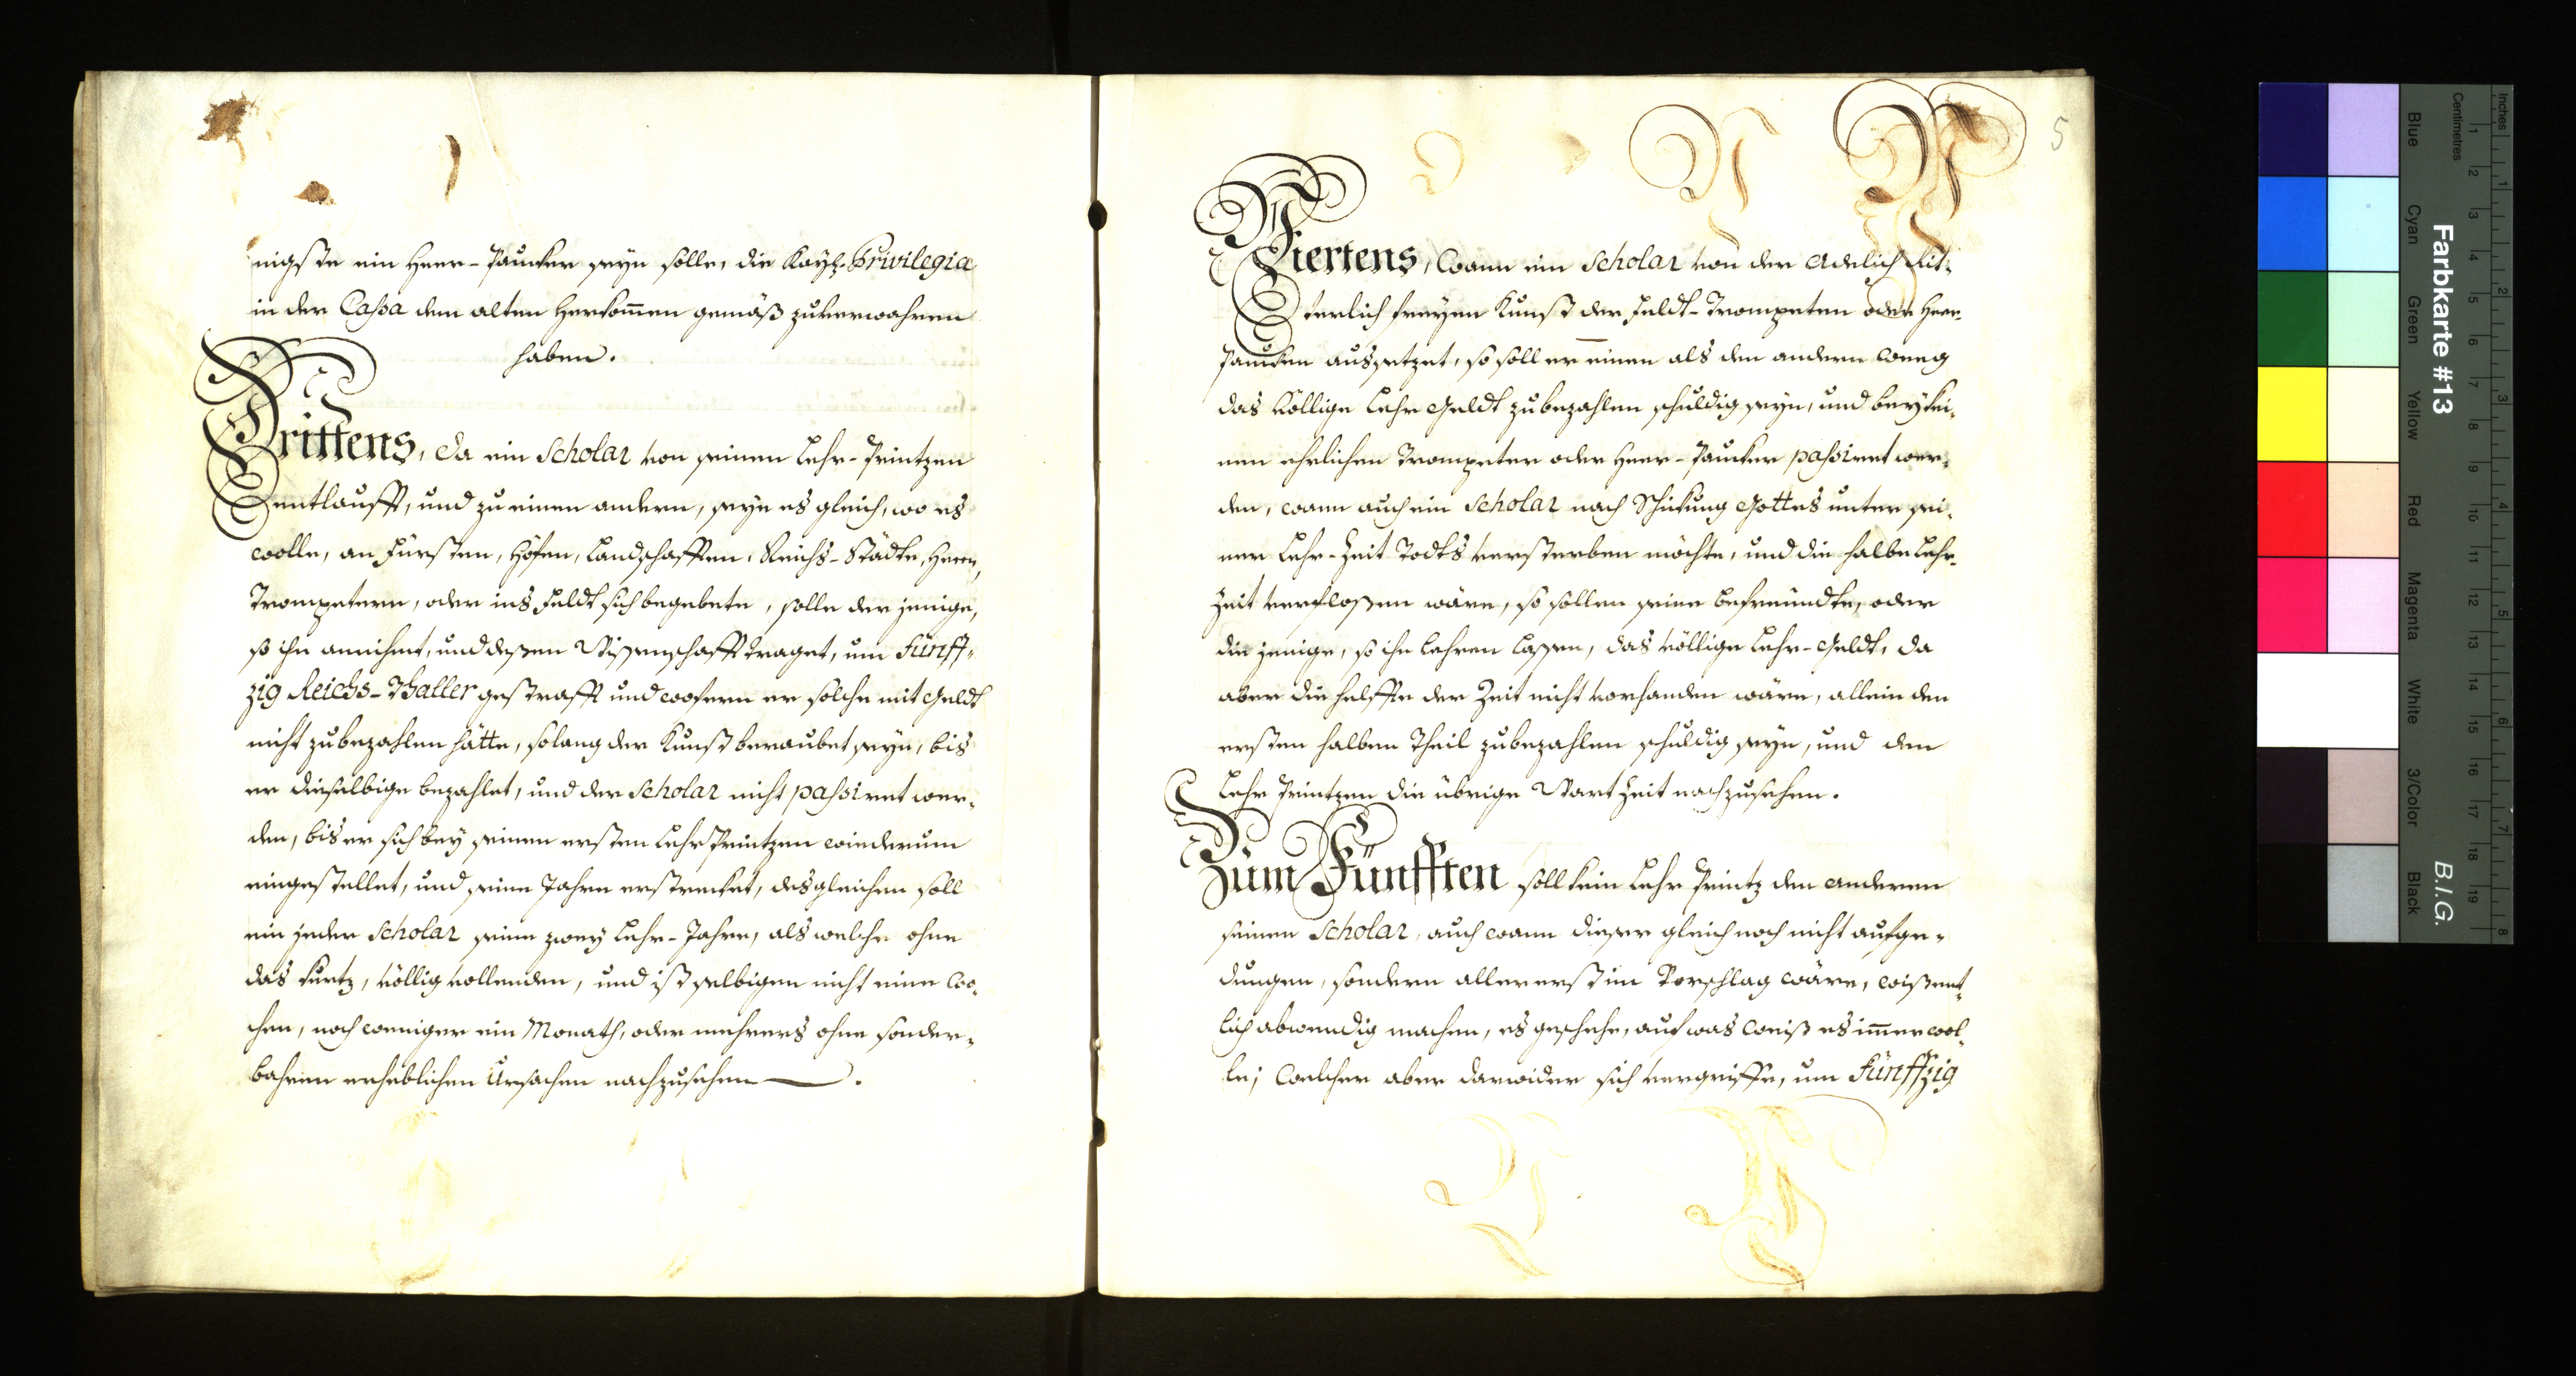 nigste ein Heer-Paucker seyn solle, die Kayß. Privilegia
in der Cassa dem alten Herkom̄en gemäß zuverwahren
haben.
Drittens, da ein Scholar von seinem Lehr-Printzen
entlaufft, und zu einen andern, seyn es gleich, wo es
wolle, an Fürsten, Höfen, Landschafften, Reichs-Städte, Heern,
Trompetern, oder ins Feldt sich begebete, solle der jenige,
so ihn annihmt, und deßen Wißenschafft traget, um Fünff-
zig Reichs-Thaller gestrafft und wofern er solche mit Geldt
nicht zubezahlen hätte, solang der Kunst beraubet seyn, bis
er dieselbige bezahlet, und der Scholar nicht passiret wer-
den, bis er sich bey seinem ersten Lehr Printzen wiederum
eingestellet, und seine Jahre erstrecket, desgleichen soll
ein jeder Scholar seine zwey Lehr-Jahre, als welche ohne
das kurtz, völlig vollenden, und ist selbigen nicht eine Wo-
chen, noch weniger ein Monath, oder mehrers ohne sonder-
bahren erheblichen Ursachen nachzusehen.
5
Viertens, Wann ein Scholar von der Adelich Rit-
terlich freyen Kunst der Feldt-Trompeten oder Heer-
Paucken aussetzet, so soll er einen als den andern Weeg
das völlige Lehr Geldt zubezahlen schuldig seyn, und bey kei-
nen ehrlichen Trompeter oder Heer-Paucker passiret wer-
den, wann auch ein Scholar nach Schickung Gottes unter sei-
ner Lehr-Zeit Todts versterben möchte, und die halbe Lehr-
Zeit verfloßen wäre, so sollen seine befreundte, oder
die jenige, so ihn lehren lassen, das völlige Lehr-Geldt, da
aber die helffte der Zeit nicht vorhanden wäre, allein den
ersten halben Theil zubezahlen schuldig seyn, und dem
Lehr Printzen die übrige Wart Zeit nachzusehen.
Zum Fünfften soll kein Lehr Printz den anderen
seinen Scholar, auch wann dieser gleich noch nicht aufge-
dungen, sondern allererst im Vorschlag wäre, wißent-
lich abwendig machen, es geschehe, auf was Weiß es im̄er wol-
le; Welcher aber darwider sich vergriffe, um Fünffzig
Farbkarte #13
B.I.G.
Inches
Centimetres
Blue
Cyan
Green
Yellow
Red
Magenta
White
3/Color
Black
1 2 3 4 5 6 7 8 9 10 11 12 13 14 15 16 17 18 19
1 2 3 4 5 6 7 8